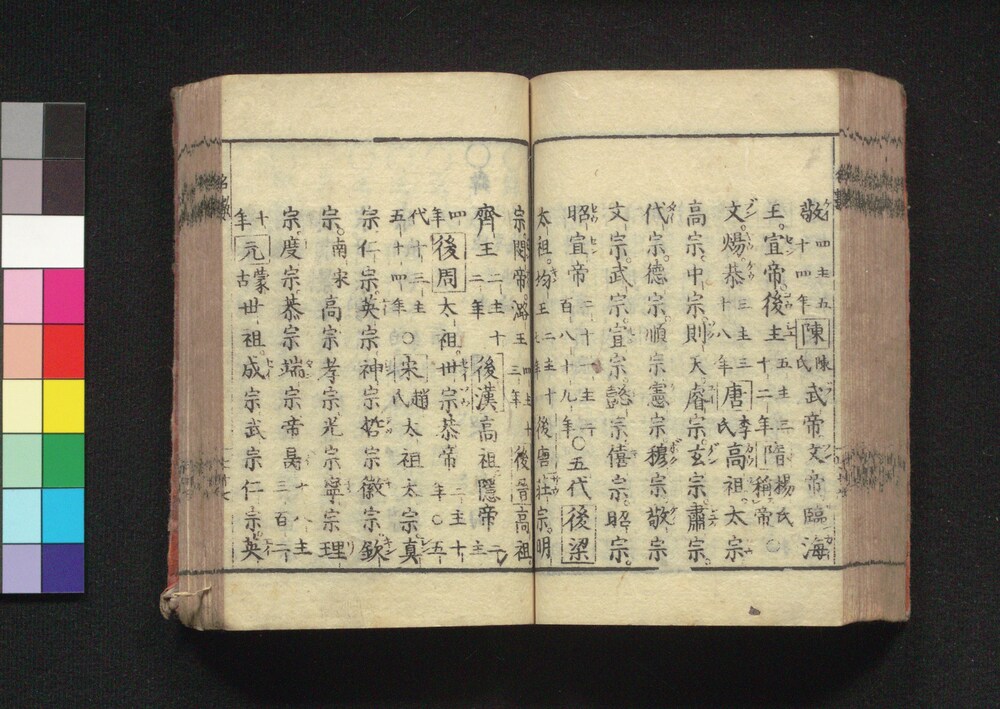 敬四主五十四年陳陳氏武帝文帝臨海
王宣帝後主五主三十二年隋楊氏稱帝〇
文煬恭三主三十八年唐李氏高祖太宗
高宗中宗則天睿宗玄宗肅宗
代宗德宗順宗憲宗穆宗敬宗
文宗武宗宣宗懿宗僖宗昭宗
昭宣帝二十一主二百八十九年〇五代後梁
太祖均王二主十七年後唐莊宗明
宗閔帝潞王四主十三年後晉高祖
齊王二主十二年後漢高祖隱帝二主
四年後周太祖世宗恭帝三主十年〇五
代十三主五十四年〇宋趙氏太祖太宗真
宗仁宗英宗神宗哲宗徽宗欽
宗南宋高宗孝宗光宗寧宗理
宗度宗恭宗端宗帝昺十八主三百二
十年元蒙古世祖成宗武宗仁宗英